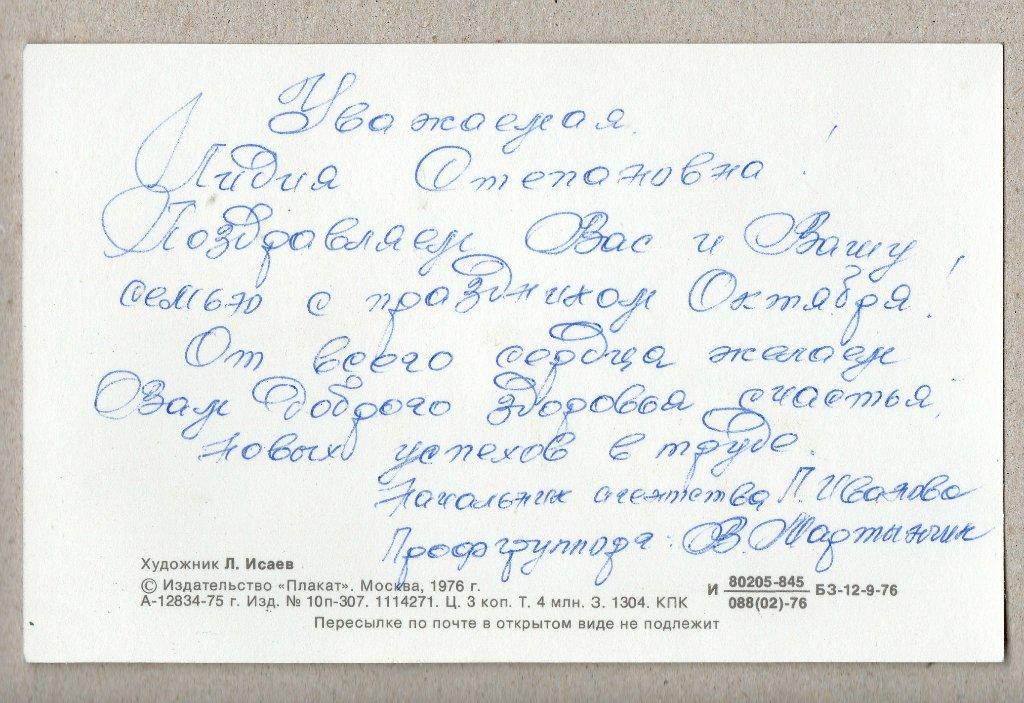 Уважаемая
Лидия Степановна!
Поздравляем Вас и Вашу
семью с праздником Октября!
От всего сердца желаем
Вам доброго здоровья счастья,
новых успехов в труде.
Начальник агентства Л. Иванова
Профгруппорг: В. Мартынчик
Художник Л. Исаев
© Издательство «Плакат». Москва, 1976 г.
А-12834-75 г. Изд. № 10п-307. 1114271. Ц. 3 коп. Т. 4 млн. З. 1304. КПК
И 80205-845 БЗ-12-9-76
088(02)-76
Пересылке по почте в открытом виде не подлежит